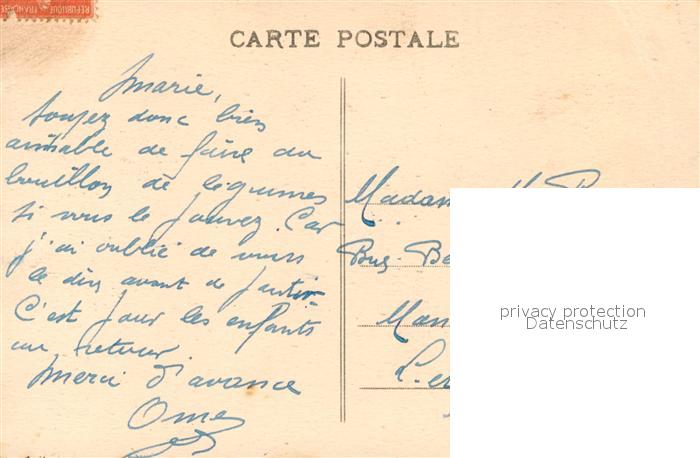 REPUBLIQUE FRANÇAISE
CARTE POSTALE
Marie,
soyez donc bien
aimable de faire du
bouillon de légumes
si vous le pouvez. Car
j'ai oublié de vous
le dire avant de partir
C'est pour les enfants
au retour
Merci d'avance
Madam
Man
privacy protection
Datenschutz